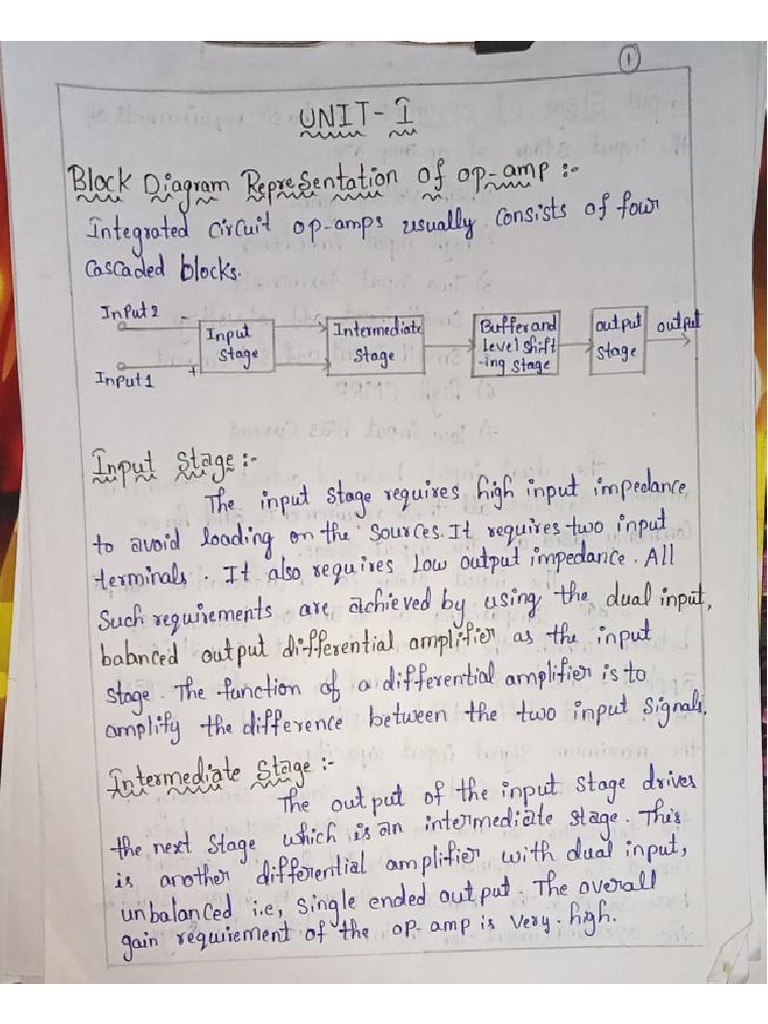 1
UNIT-I
Block Diagram Representation of op-amp :-
Integrated circuit op-amps usually consists of four
cascaded blocks.
Input 2 -
Input 1 +
Input
Stage
Intermediate
Stage
Buffer and
level shift
-ing stage
output
stage
output
Input Stage :-
The input stage requires high input impedance
to avoid loading on the sources. It requires two input
terminals. It also requires Low output impedance. All
such requirements are achieved by using the dual input,
balanced output differential amplifier as the input
stage. The function of a differential amplifier is to
amplify the difference between the two input signals.
Intermediate Stage :-
The output of the input stage drives
the next stage which is an intermediate stage. This
is another differential amplifier with dual input,
unbalanced i.e, single ended output. The overall
gain requirement of the op-amp is very high.